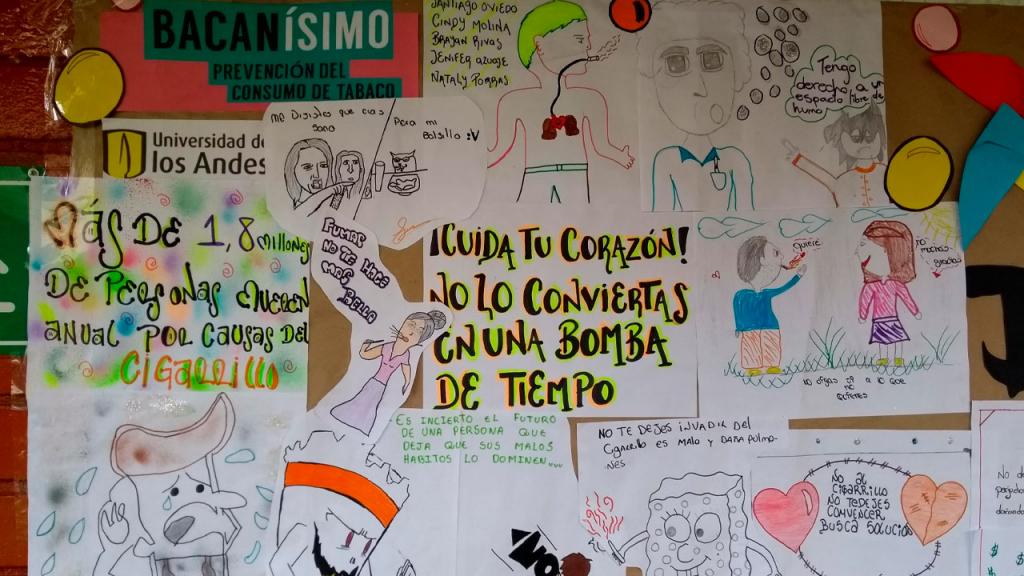 BACANÍSIMO
PREVENCIÓN DEL
CONSUMO DE TABACO
Universidad de
los Andes
SANTIAGO OVIEDO
CINDY MOLINA
BRAYAN RIVAS
JENIFER AZUAJE
NATALY PORRAS
Tengo
derecho a
espacio libre de
humo
ME Dijiste que eras
sana
Para mi
bolsillo :V
FUMAR
NO TE HACE
MAS BELLA
MÁS DE 1,8 millones
DE PERSONAS MUEREN
ANUAL POR CAUSAS DEL
CIGARRILLO
¡CUIDA TU CORAZÓN!
NO LO CONVIERTAS
EN UNA BOMBA
DE TIEMPO
Quiere
no
muchas
gracias
no digas si a lo que
no
quieres
ES INCIERTO EL FUTURO
DE UNA PERSONA QUE
DEJA QUE SUS MALOS
HABITOS LO DOMINEN...
NO TE DEJES INVADIR DEL
Cigarrillo es MALO y DAÑA PULMO-
NES
NO AL
CIGARRILLO
NO TE DEJES
CONVENCER
BUSCA SOLUCION
NO
No